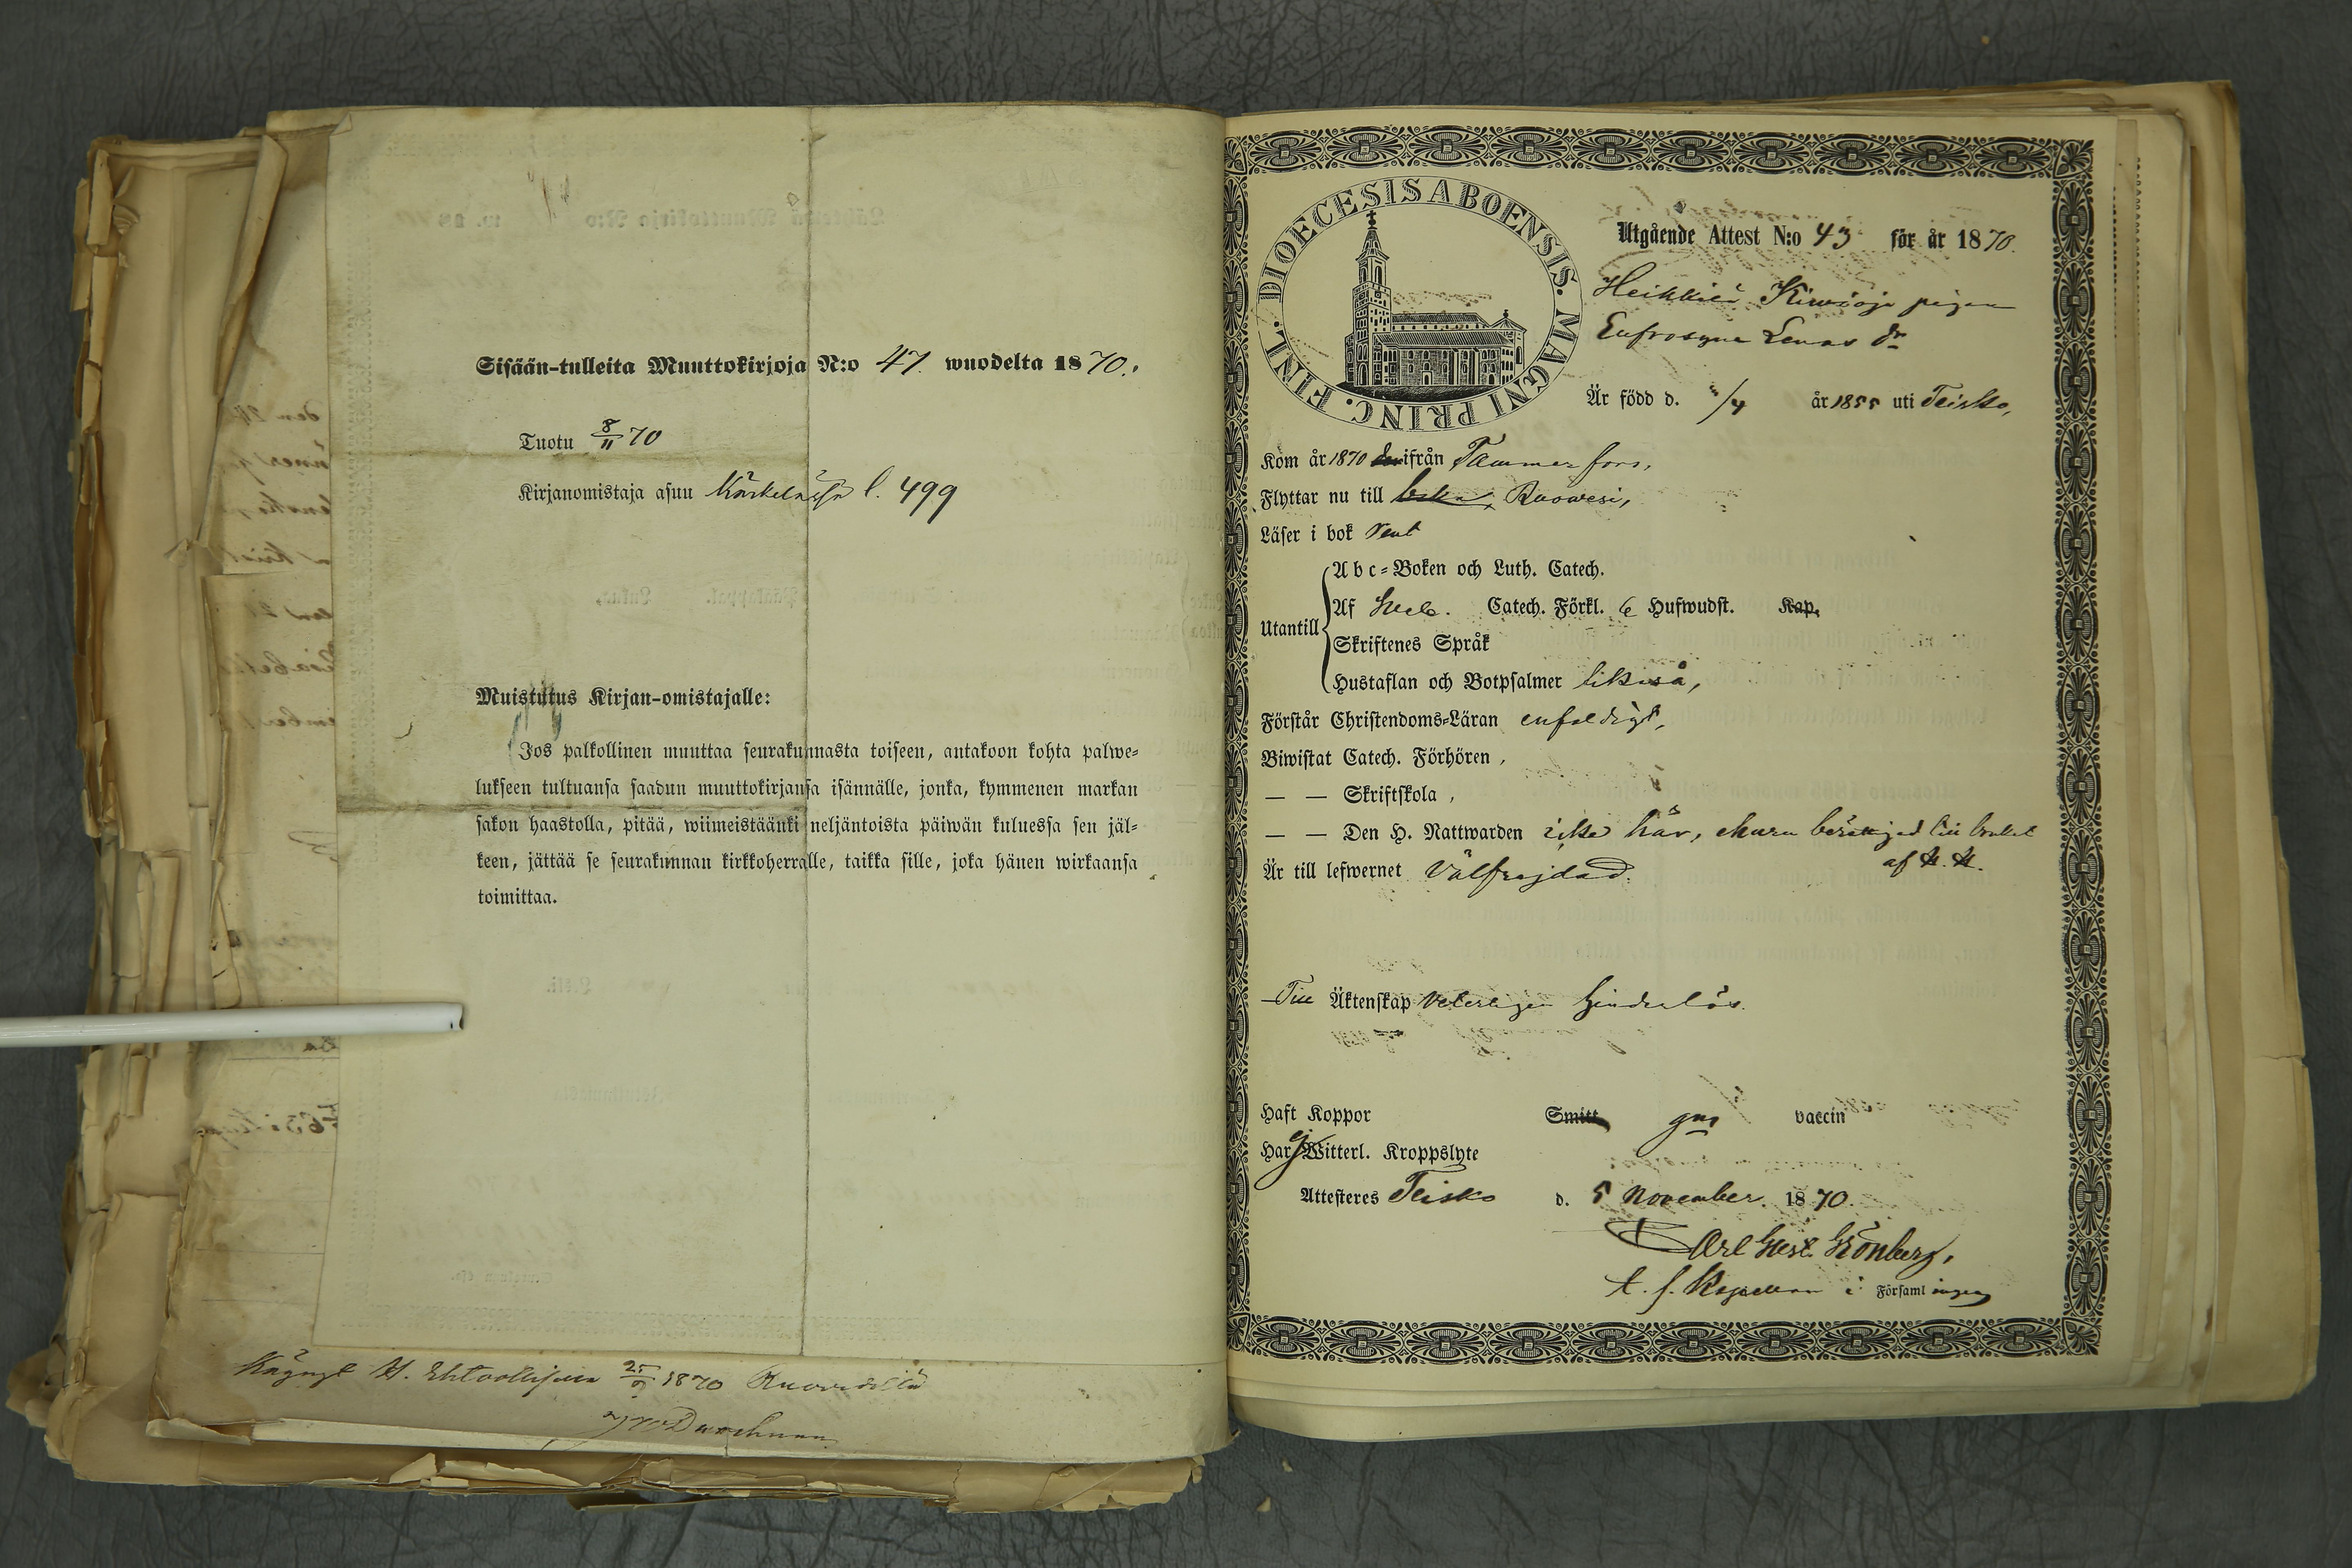 Sisään-tulleita Muuttokirjoja N:o 47. wuodelta 1870.
Tuotu 8/11 70
Kirjanomistaja asuu l. 499
Muistutus Kirjan-omistajalle:
Jos palkollinen muuttaa seurakunnasta toiseen, antakoon kohta palwe-
lukseen tultuansa saadun muuttokirjansa isännälle, jonka, kymmenen markan
sakon haastolla, pitää, wiimeistäänki neljäntoista päiwän kuluessa sen jäl-
keen, jättää se seurakunnan kirkkoherralle, taikka sille, joka hänen wirkaansa
toimittaa.
Käynyt H. Ehtoollisella 1870 Ruovedellä
DIOECESIS ABOENSIS. MAGNI PRINC. FINL.
Utgående Attest N:o 43 för år 1870.
Heikkilä Kiwioja pigan
Eufrosyne Lenas dr
Är född d. /4 år 1855 uti Teisko,
Kom år 1870 ifrån Tammerfors,
Flyttar nu till Ruowesi,
Läser i bok rent
Utantill
Abc-Boken och Luth. Catech.
Af Sveb. Catech. Förkl. 6 Hufwudst. Kap.
Skriftenes Språk
Hustaflan och Botpsalmer likaså,
Förstår Christendoms-Läran enfaldigt,
Biwistat Catech. Förhören,
— — Skriftskola,
— — Den H. Nattwarden icke här, ehuru berättigad till bruket
af H. H.
Är till lefwernet Välfrejdad.
Till Äktenskap veterligen hinderlös.
Haft Koppor Smitt gm vaccin
Har ej Witterl. Kroppslyte
Attesteres Teisko d. 5 November 1870.
Carl Gust. Grönberg,
t. f. Kapellan i Församlingen